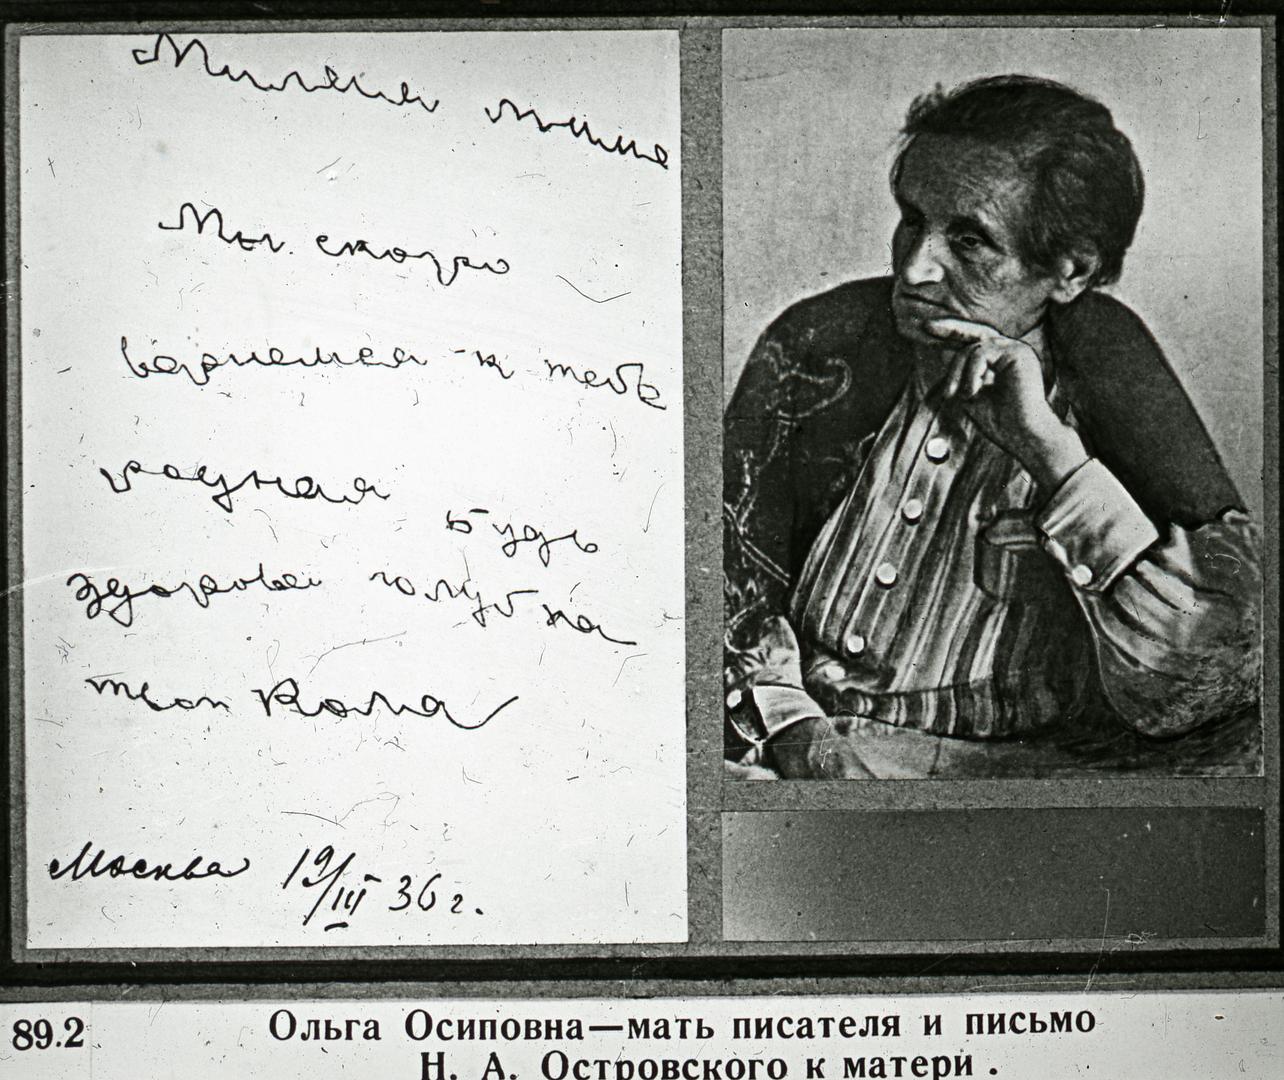 Милая мама
Мы скоро
вернемся к тебе
родная будь
здорова голубка
твой Коля
Москва 19/III 36 г.
89.2
Ольга Осиповна—мать писателя и письмо
Н. А. Островского к матери.